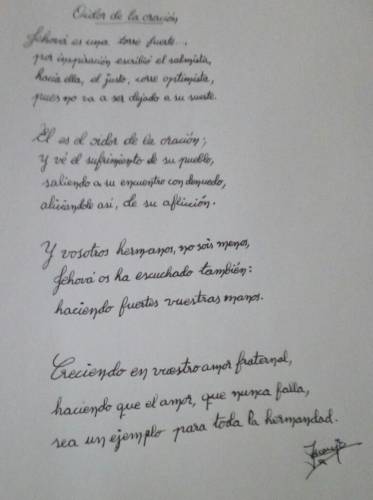 Oidor de la oración
Jehová es una torre fuerte...,
por inspiración escribió el salmista,
hacia ella, el justo, corre optimista,
pues no va a ser dejado a su suerte.
Él es el oidor de la oración;
Y vé el sufrimiento de su pueblo,
saliendo a su encuentro con denuedo,
aliviandole así, de su aflicción.
Y vosotros hermanos, no sois menos,
Jehová os ha escuchado también:
haciendo fuertes vuestras manos.
Creciendo en vuestro amor fraternal,
haciendo que el amor, que nunca falla,
sea un ejemplo para toda la hermandad.